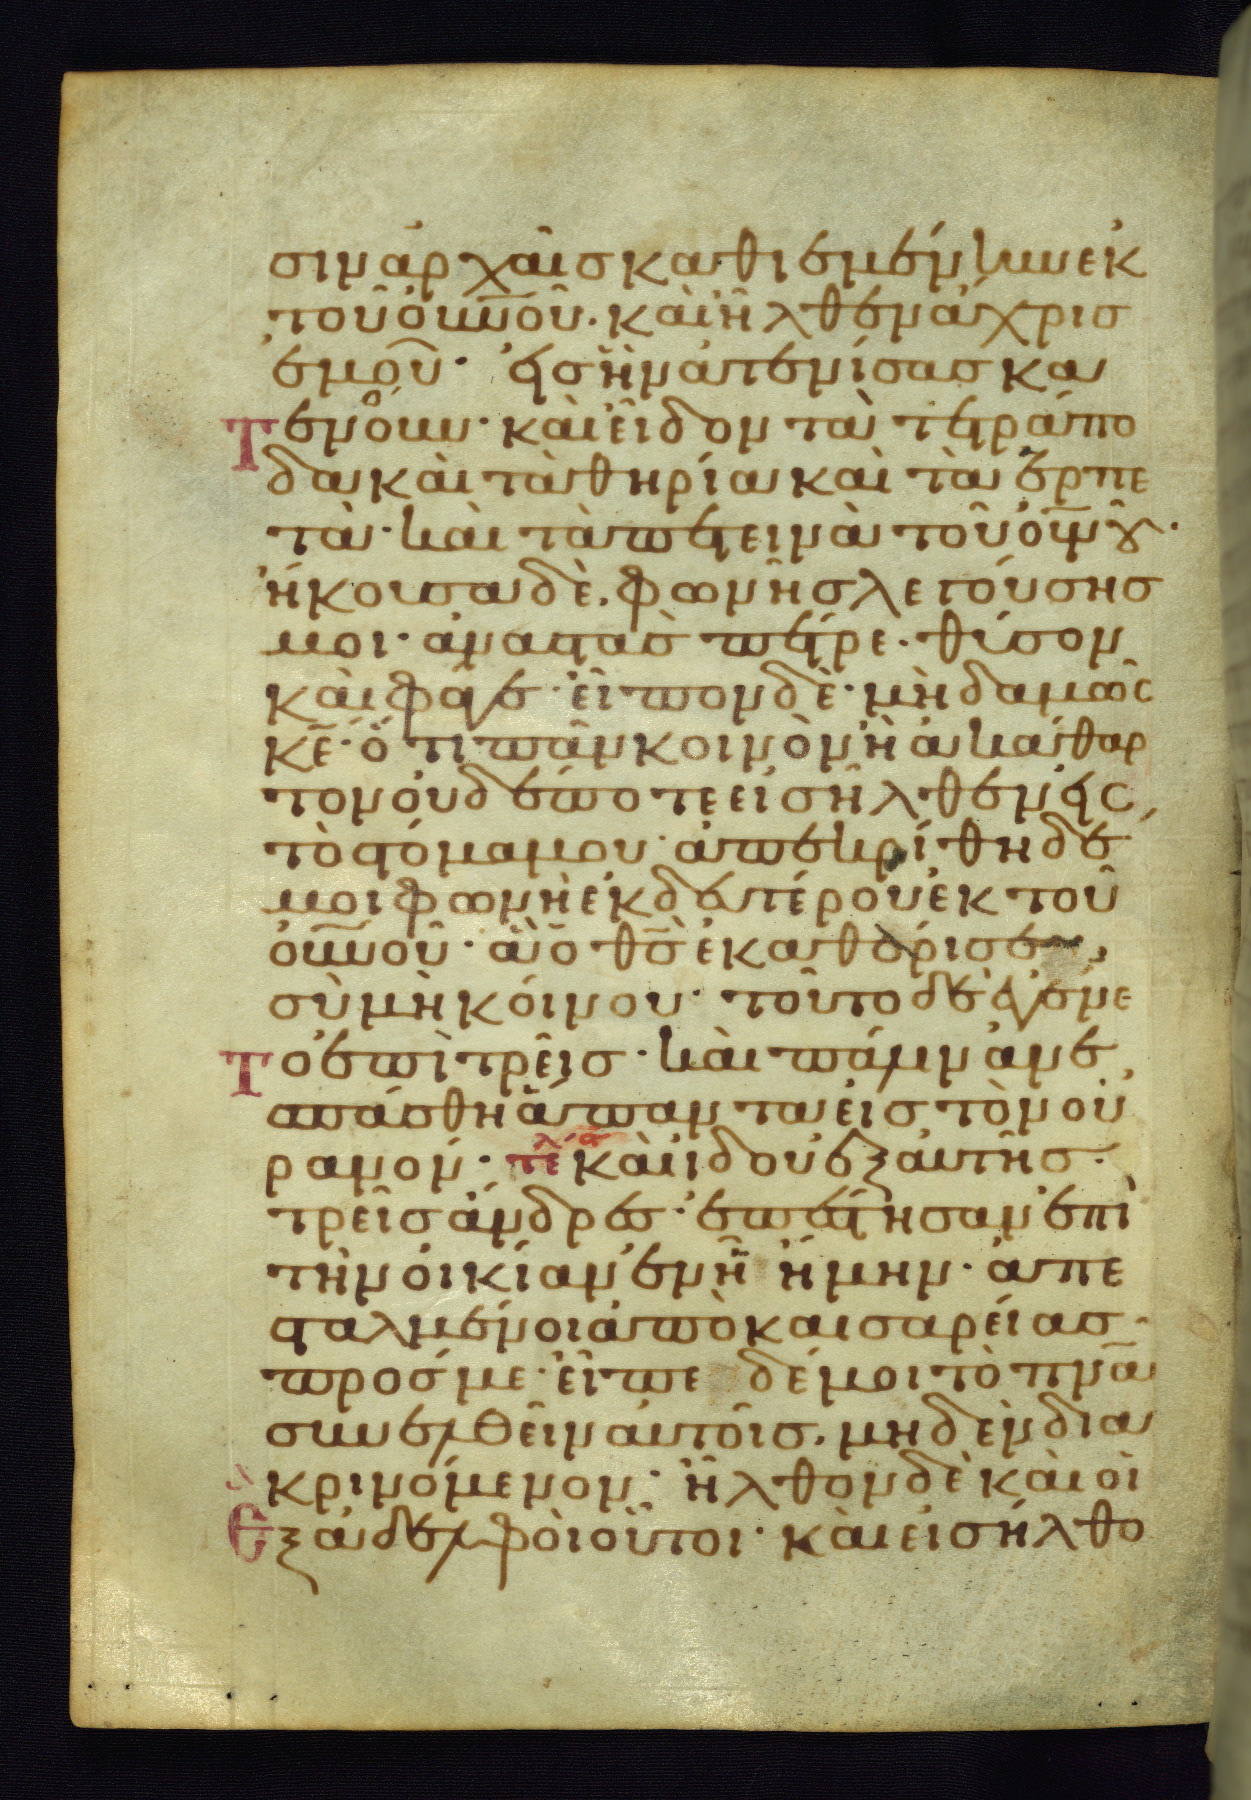 σιν ἀρχαῖς καθιεμένην ἐκ
τοῦ οὐνοῦ. καὶ ἦλθεν ἄχρις
ἐμοῦ· εἰς ἣν ἀτενίσας κα
Τενόουν· καὶ εἶδον τὰ τετράπο
δα καὶ τὰ θηρία καὶ τὰ ἑρπε
τὰ· καὶ τὰ πετεινὰ τοῦ οὐνοῦ·
ἤκουσα δὲ. φωνῆς λεγούσης
μοι· ἀναστὰς πέτρε. θύσον
καὶ φάγε· εἶπον δὲ· μὴδαμῶς
κε̄· ὅτι πᾶν κοινὸν ἢ ἀκάθαρ
τον οὐδέποτε εἰσῆλθεν εἰς
τὸ στόμα μου· ἀπεκρίθη δε
μοι φωνὴ ἐκ δευτέρου ἐκ τοῦ
οὐνοῦ· ἃ ὁ θς̄ ἐκαθάρισεν,
σὺ μὴ κοίνου· τοῦτο δὲ ἐγένε
Το ἐπὶ τρεῖς· καὶ πάλιν ἀνε
σπάσθη ἅπαντα εἰς τὸν οὐ
ρανόν· τε̄λ καὶ ἰδοὺ ἐξαυτῆς·
τρεῖς ἄνδρες· ἐπέστησαν ἐπὶ
τὴν οἰκίαν ἐν ᾗ ἤμην· ἀπε
σταλμένοι ἀπὸ καισαρείας·
πρός με· εἶπε δέ μοι τὸ πνᾱ
συνελθεῖν αὐτοῖς. μηδὲν δια
κρινόμενον· ἦλθον δὲ καὶ οἱ
Εξ ἀδελφοὶ οὗτοι· καὶ εἰσήλθο